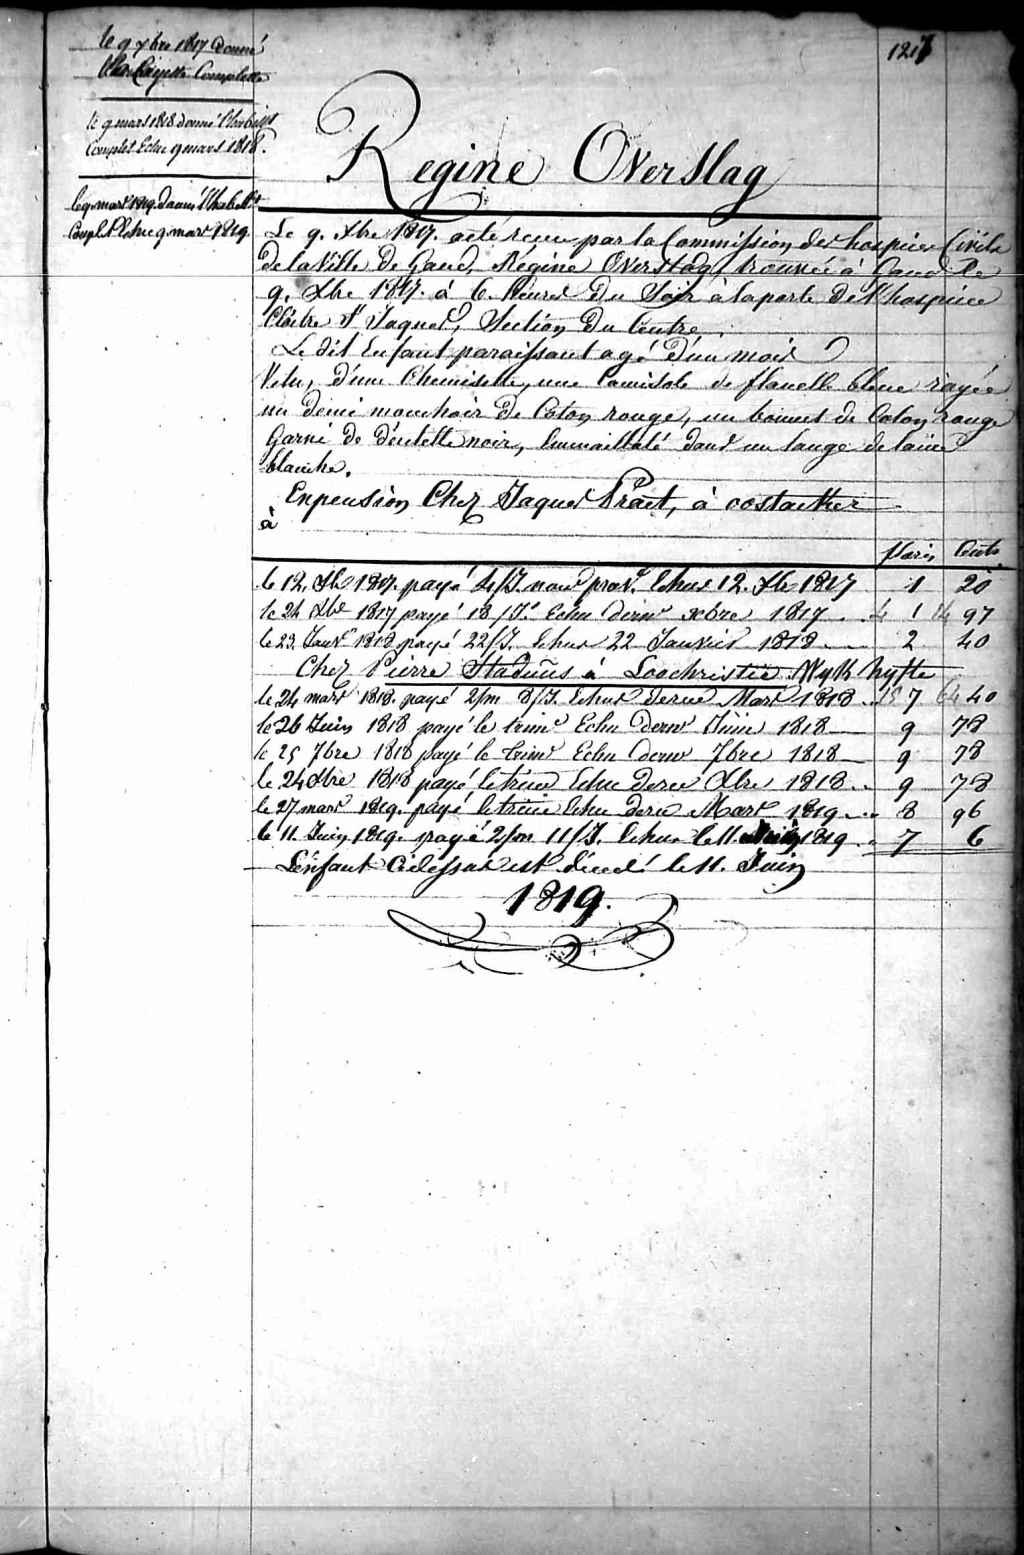 1217
le 9 xbre 1817 donné
Une Layette Complette
le 9 mars 1818 donné l'habillt
Complet Echu 9 mars 1818.
le 9 mars 1819. donné l'habillt
Complet Echu 9 mars 1819.
Regine Overslag
Le 9. Xbre 1817. a été recue par la Commission des hospices Civils
de la Ville de Gand, Regine Overslag, trouvée à Gand le
9. Xbre 1817. à 6. heures du Soir à la porte de l'hospice
Cloitre St Jaques, Section du Centre.
Le dit Enfant paraissant agé d'un mois
Vetu, d'une Chemisette, une Camisole de flanelle bleue rayée
un demi mouchoir de Coton rouge, un bonnet de Coton rouge
garni de dentelle noire, Emmaillotté dans un lange de laine
blanche.
En pension Chez Jaques Praet, à Oostacker
à
florins Cents
le 12. Xbre 1817. payé 4/J. nour prov. Echus 12. Xbre 1817 1 20
le 24 Xbre 1817 payé 18/Js Echu dernr xbre 1817 4 1 14 97
le 23. Janvr 1818 payé 22/J. Echus 22 Janvier 1818 2 40
Chez Pierre Stadius à Loochristie Wyk hyfte
le 24 mars 1818. payé 2/m 8/J. Echus dernr Mars 1818 18 7 64 40
le 26 Juin 1818 payé le trime Echu dernr Juin 1818 9 78
le 25 7bre 1818 payé le trimr Echu dernr 7bre 1818 9 78
le 24 Xbre 1818 payé le trime Echu dernr Xbre 1818 9 78
le 27 mars 1819. payé le trime Echu dernr Mars 1819 8 96
le 11. Juin 1819. payé 2/m 11/J. Echus le 11. Juin 1819 7 6
L'enfant Cidessus est décédé le 11. Juin
1819.